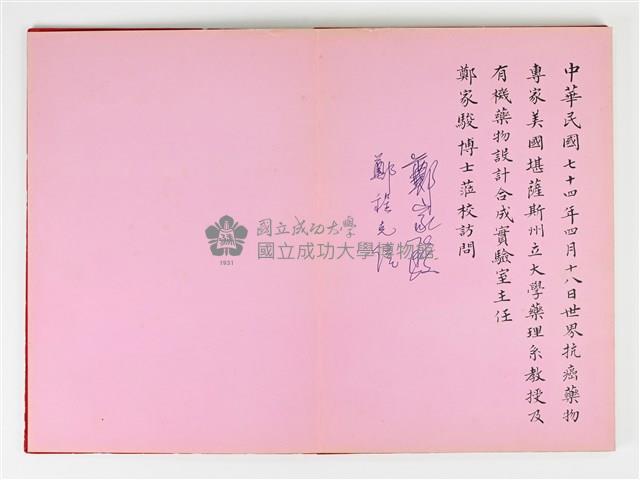 中華民國七十四年四月十八日世界抗癌藥物
專家美國堪薩斯州立大學藥理系教授及
有機藥物設計合成實驗室主任
鄭家駿博士蒞校訪問
鄭家駿
國立成功大學
國立成功大學博物館
1931